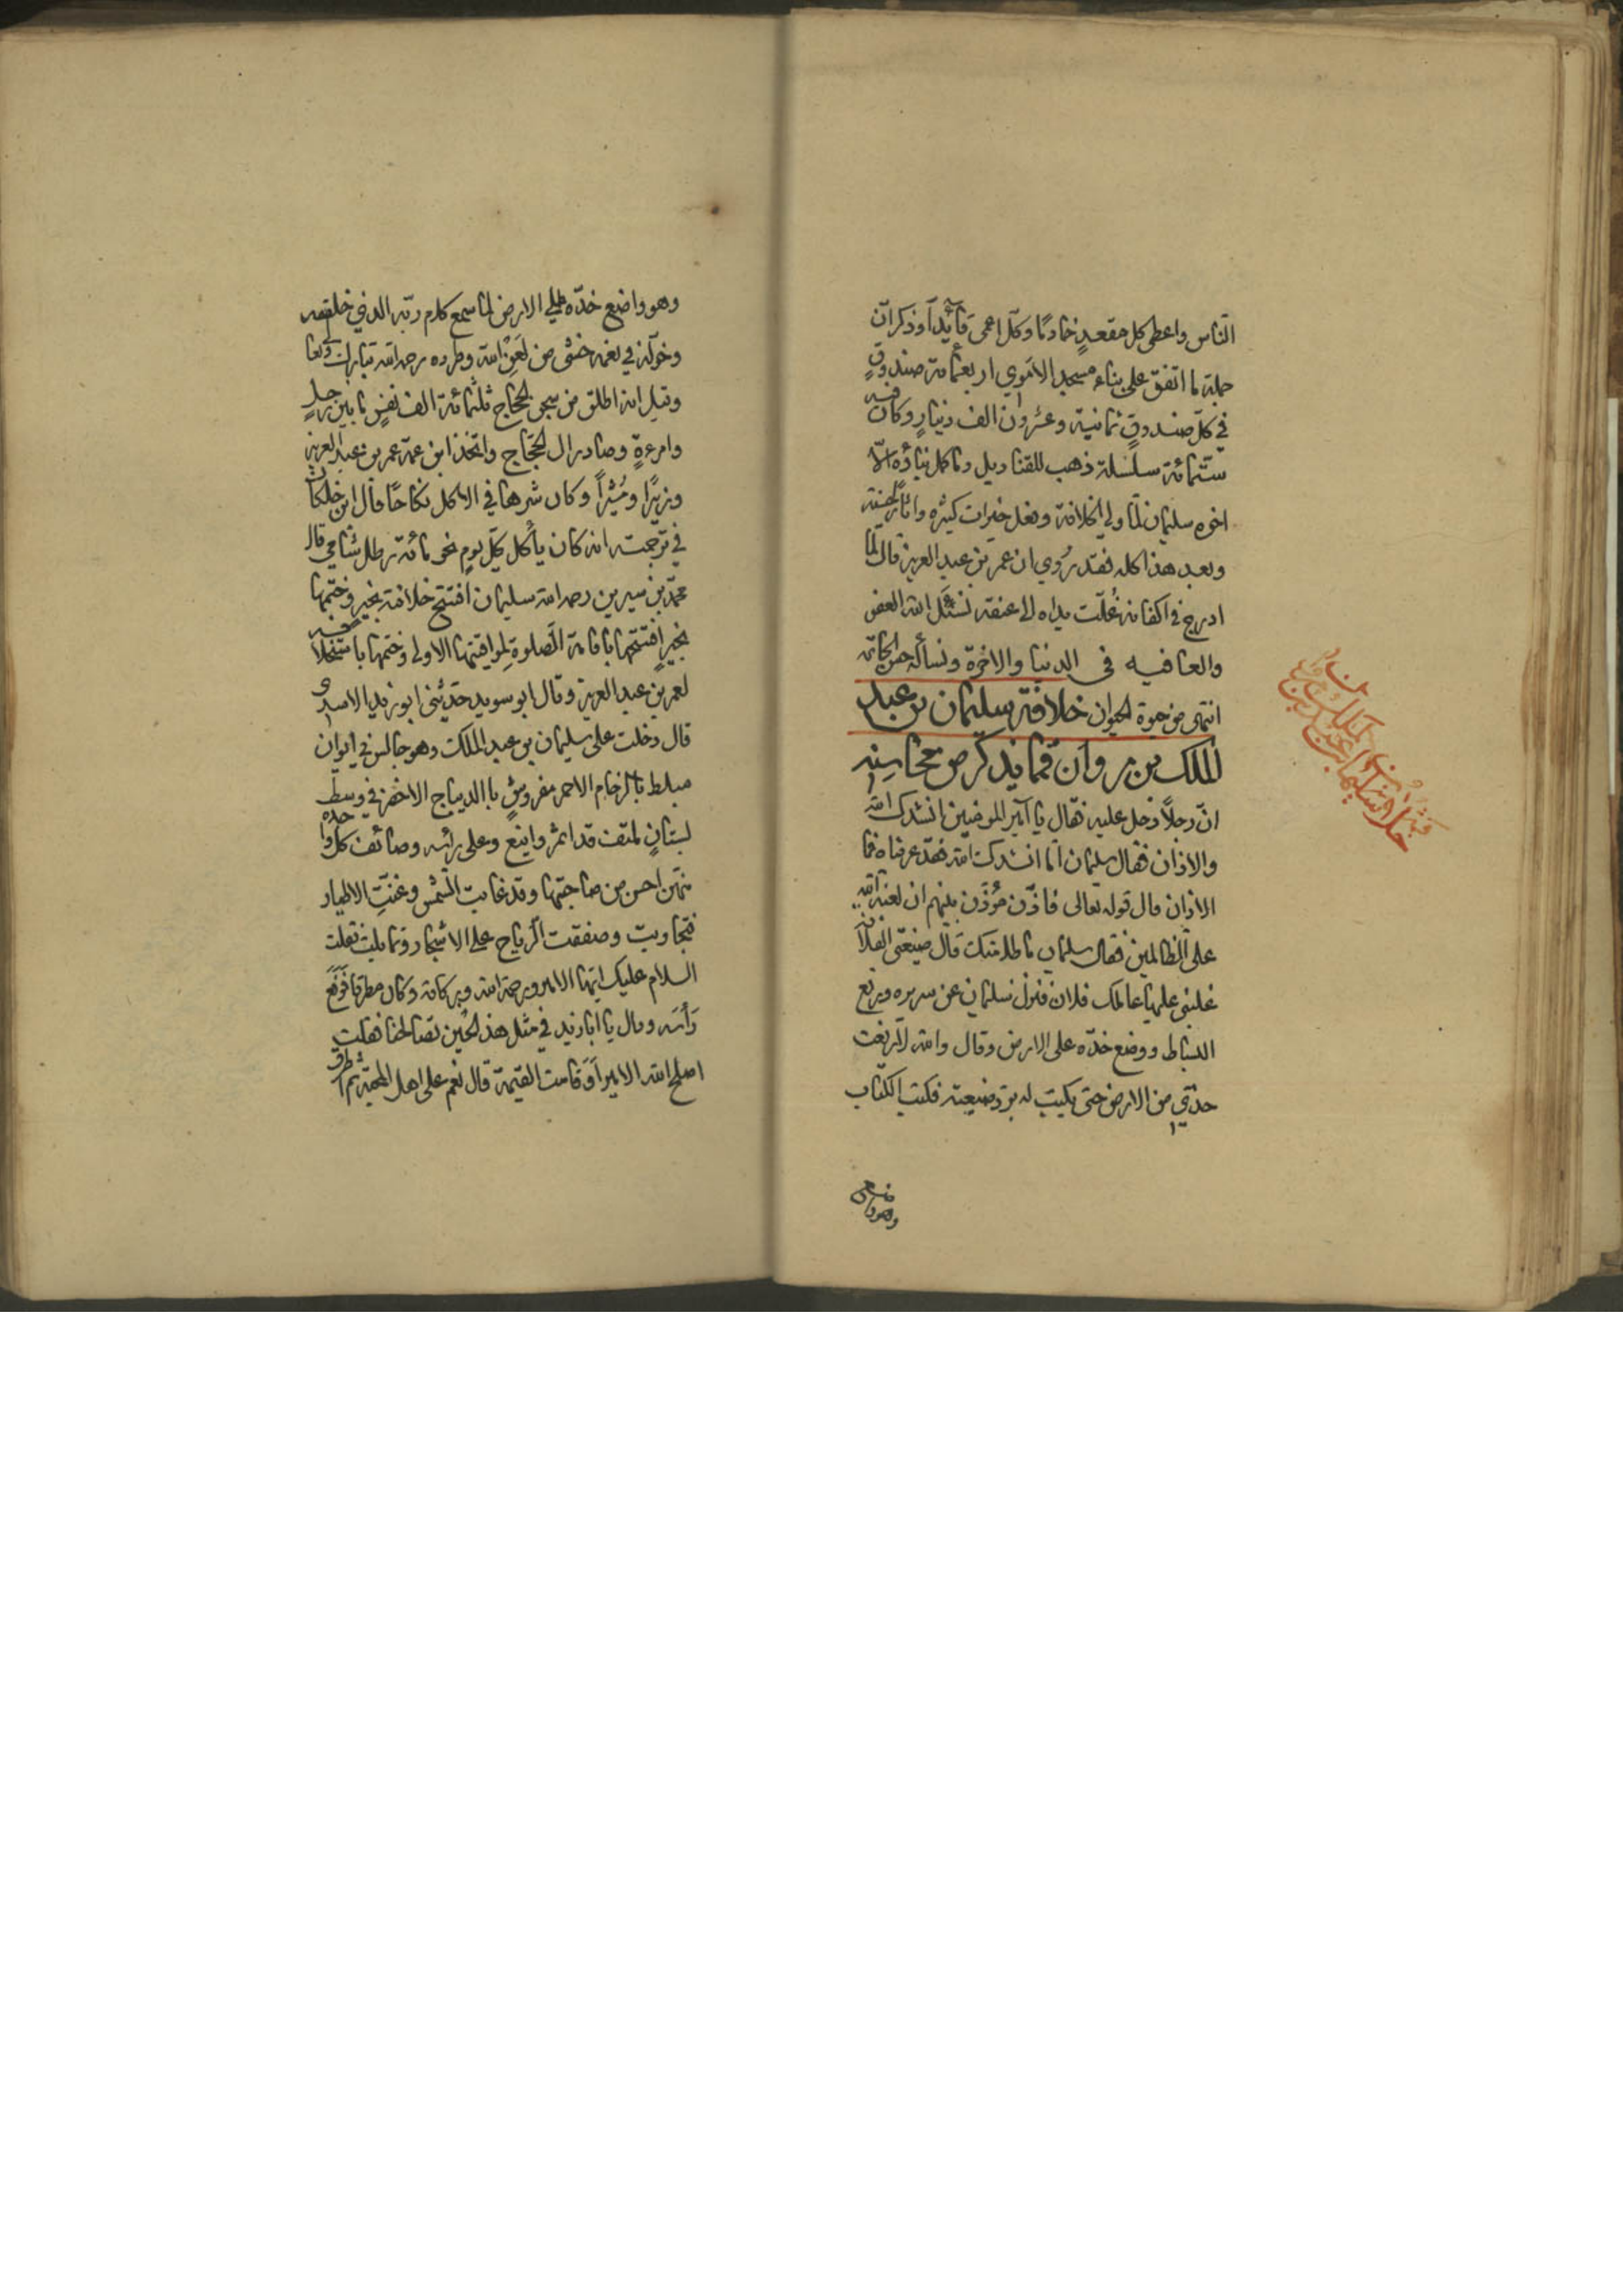 الناس واعطى كل مقعدٍ خادمًا وكل اعمى قائدًا وذكر ان
جملة ما اتفق على بناء مسجد الاموي اربعمائة صندوقٍ
في كل صندوقٍ ثمانية وعشرون الف دينارٍ وكان فيه
ستمائة سلسلة ذهب للقناديل وما كمل بناؤه الا
اخوه سليمان لما ولي الخلافة وفعل خيرات كثيره واثار حسنة
وبعد هذا كله فقد رُوي ان عمر بن عبد العزيز قال لما
ادرج في اكفانه غُلّت يداه الى عنقه نسئل الله العفو
والعافيه في الدنيا والاخرة ونسأله حسن الخاتمه
انتهى من حيوة الحيوان خلافة سليمان بن عبد
الملك بن مروان فمما يذكر من محاسنه
ان رجلاً دخل عليه فقال يا امير المومنين انشدك الله
والاذان فقال سليمان اما انشدك الله فقد عرفناه فما
الاذان قال قوله تعالى فاذّن مؤذّن بينهم ان لعنة الله
على الظالمين فقال سليمان ما ظلامتك قال ضيعتي الفلانية
غلبني عليها عاملك فلان فنزل سليمان عن سريره ورفع
البساط ووضع خدّه على الارض وقال والله لا رفعت
خدّي من الارض حتى يكتب له برد ضيعته فكتب الكتاب
وهو واضع
وهو واضع خدّه على الارض لما سمع كلام ربّه الذي خلقه
وخوّله في نعمه خشى من لعن الله وطرده رحمه الله تبارك وتعالى
وقيل انه اطلق من سجن الحجاج ثلثمائة الف نفسٍ ما بين رجلٍ
وامرءةٍ وصادر ال الحجّاج واتخذ ابن عمه عمر بن عبد العزيز
وزيرًا ومُشيراً وكان شرها في الاكل نكاحًا قال ابن خلكان
في ترجمته انه كان يأكل كل يومٍ نحو مائة رطل شامي قال
محمد بن سيرين رحمه الله سليمان افتتح خلافته بخير وختمها
بخيرٍ افتتحها باقامة الصلوة لمواقيتها الاولى وختمها باستخلافه
لعمر بن عبد العزيز وقال ابو سويد حدّثني ابو زيد الاسدى
قال دخلت على سليمان بن عبد الملك وهو جالس في ايوان
مبلط بالرخام الاحمر مفروشٍ باالديباج الاخضر في وسط
بستانٍ ملتف قد اثمر واينع وعلى رأسه وصائف كل واحده
منهن احسن من صاحبتها وقد غابت الشمس وغنّت الاطيار
فتجاوبت وصفقت الرياح على الاشجار وتمايلت فقلت
السلام عليك ايها الامير ورحمة الله وبركاته وكان مطرقا فرفع
رأسه وقال يا ابا زيد في مثل هذ الحين تصالحنا فقلت
اصلح الله الامير أو قامت القيمة قال نعم على اهل المحبة ثم اطرق